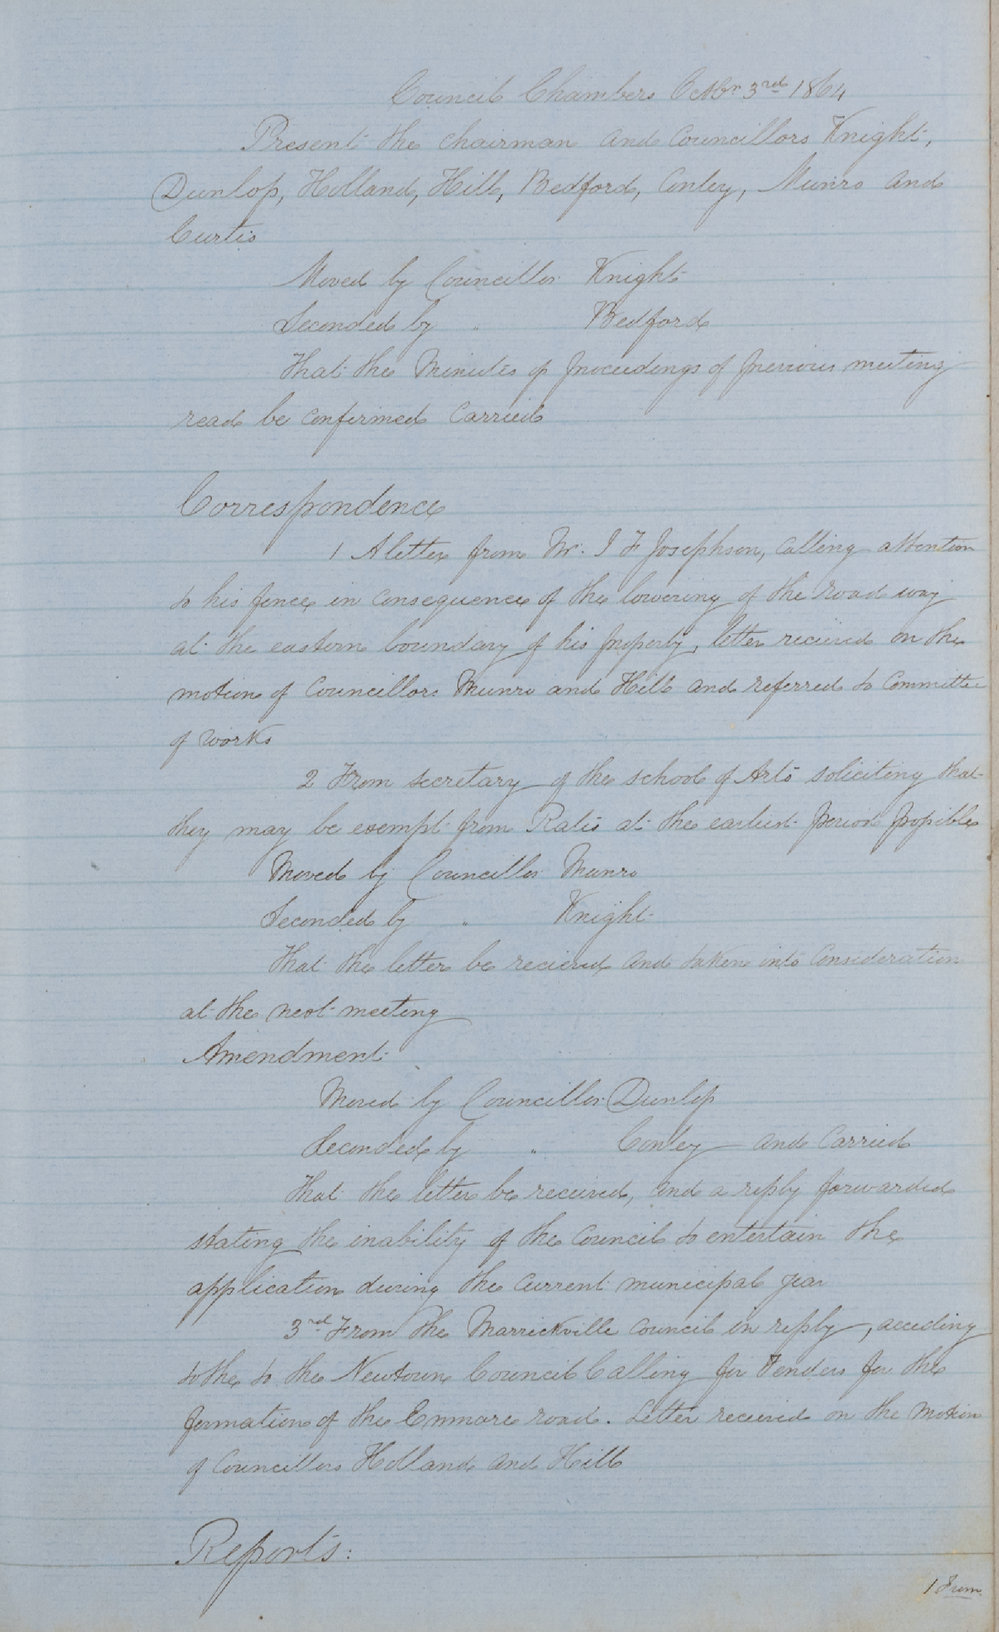 Council Chambers Octbr 3rd 1864
Present the Chairman and Councillors Knight,
Dunlop, Holland, Hill, Bedford, Conley, Munro and
Curtis
Moved by Councillor Knight
Seconded by " Bedford
That the Minutes of proceedings of previous meeting
read be confirmed Carried
Correspondence
1 A letter from Mr. J F Josephson, calling attention
to his fence in consequence of the lowering of the road way
at the eastern boundary of his property, letter recieved on the
motion of Councillors Munro and Hill and referred to Committee
of Works
2 From secretary of the school of Arts soliciting that
they may be exempt from Rates at the earliest period possible
Moved by Councillor Munro
Seconded by " Knight
That the letter be recieved and taken into Consideration
at the next meeting
Amendment
Moved by Councillor Dunlop
Seconded by " Conley and Carried
That the letter be received, and a reply forwarded
stating the inability of the Council to entertain the
application during the Current municipal year
3rd From the Marrickville Council in reply, acceding
to the to the Newtown Council Calling for Tenders for the
formation of the Enmore road. Letter received on the Motion
of Councillors Holland and Hill
Reports:
1 From